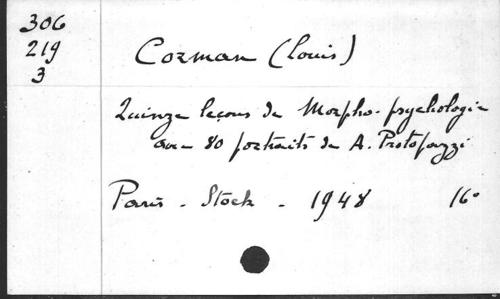 306
219
3
Corman (Louis)
Quinze leçons de Morpho-psychologie
avec 80 portraits de A. Protopazzi
Paris - Stock - 1948 16°